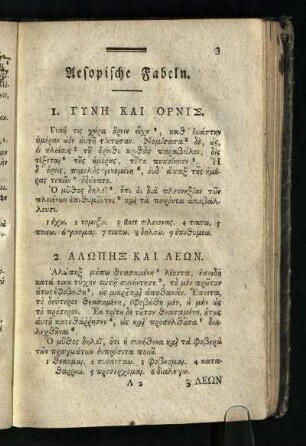 3
Aesopische Fabeln.
1. ΓΥΝΗ ΚΑΙ ΟΡΝΙΣ.
Γυνή τις χήρα ὄρνιν εἶχε ¹, καθ᾽ ἑκάστην
ἡμέραν ὠὸν αὐτῇ τίκτουσαν. Νομίσασα ² δὲ, ὡς,
εἰ πλείους ³ τῇ ὄρνιθι κριθὰς παραβάλοι, δὶς
τέξεται ⁴ τῆς ἡμέρας, τοῦτο πεποίηκεν ⁵. Ἡ
δ᾽ ὄρνις, πιμελὴς γενομένη ⁶, οὐδ᾽ ἅπαξ τῆς ἡμέ-
ρας τεκεῖν ⁷ ἐδύνατο.
Ὁ μῦθος δηλοῖ ⁸, ὅτι οἱ διὰ πλεονεξίαν τῶν
πλειόνων ἐπιθυμοῦντες ⁹ καὶ τὰ παρόντα ἀποβάλ-
λουσι.
1 ἔχω. 2 νομίζω. 3 statt πλειονας. 4 τικτω. 5
ποιεω. 6 γινομαι. 7 τικτω. 8 δηλοω. 9 επιθυμεω.
2. ΑΛΩΠΗΞ ΚΑΙ ΛΕΩΝ.
Ἀλώπηξ μήπω θεασαμένη ¹ λέοντα, ἐπειδὴ
κατά τινα τύχην αὐτῇ συνήντησε ², τὸ μὲν πρῶτον
οὕτως ἐφοβήθη ³, ὡς μικροῦ καὶ ἀποθανεῖν. Ἔπειτα,
τὸ δεύτερον θεασαμένη, ἐφοβήθη μὲν, οὐ μὴν ὡς
τὸ πρότερον. Ἐκ τρίτου δὲ τοῦτον θεασαμένη, οὕτως
αὐτοῦ κατεθάῤῥησεν ⁴, ὡς καὶ προσελθοῦσα ⁵
διαλεχθῆναι ⁶.
Ὁ μῦθος δηλοῖ, ὅτι ἡ συνήθεια καὶ τὰ φοβερὰ
τῶν πραγμάτων εὐπρόσιτα ποιεῖ.
1 θεαομαι. 2 συναντάω. 3 φοβερμαι. 4 κατα-
θαρρεω. 5 προσερχομαι. 6 διαλεγω.
A 2 3 ΛΕΩΝ